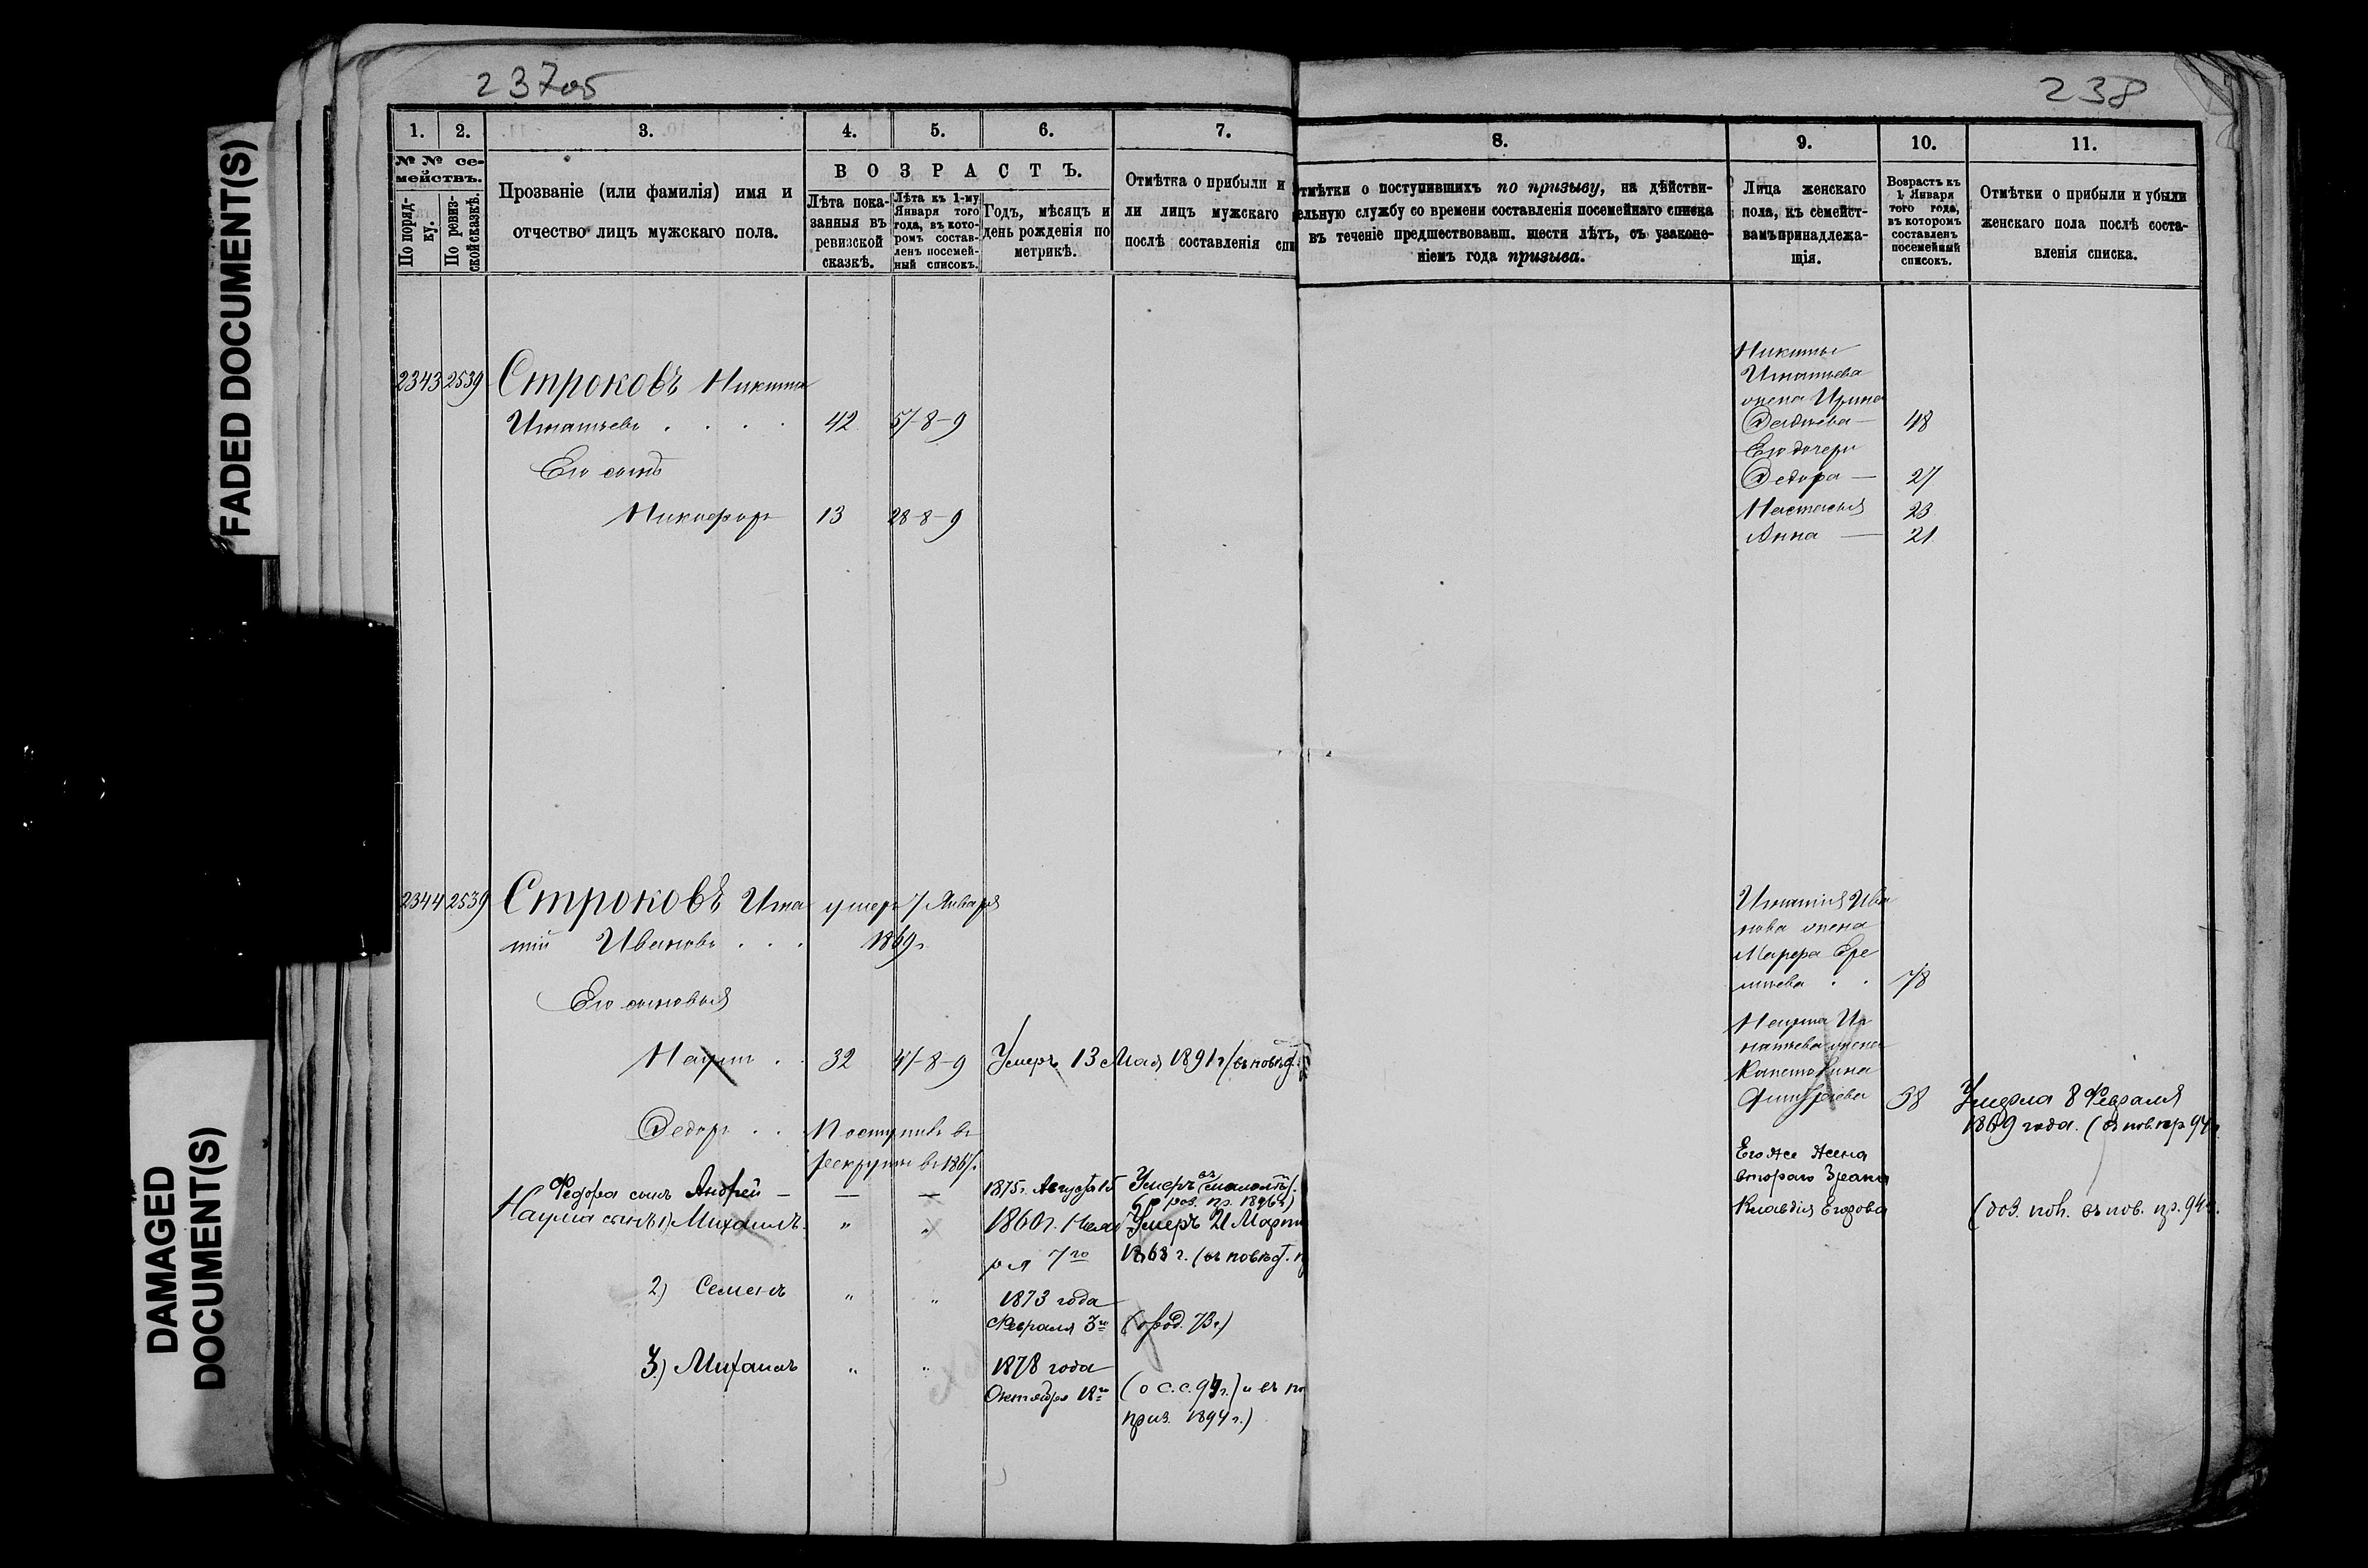 FADED DOCUMENT(S)
DAMAGED
DOCUMENT(S)
237об
1. 2. 3. 4. 5. 6. 7.
№ № се-
мействъ.
По поряд-
ку.
По ревиз-
ской сказкѣ.
Прозваніе (или фамилія) имя и
отчество лицъ мужскаго пола.
В О З Р А С Т Ъ.
Лѣта пока-
занныя въ
ревизской
сказкѣ.
Лѣта къ 1-му
Января того
года, въ кото-
ромъ состав-
ленъ посемей-
ный списокъ.
Годъ, мѣсяцъ и
день рожденія по
метрикѣ.
Отмѣтка о прибыли и
ли лицъ мужскаго
послѣ составленія спи
2343 2539 Строковъ Никита
Игнатьевъ . . . . 42 57-8-9
Его сынъ
Никифоръ 13 28-8-9
2344 2539 Строковъ Игна умеръ 7 Января
тій Ивановъ . . . 1869г.
Его сыновья
Наумъ . . 32 47-8-9 Умеръ 13 Мая 1891г
Федоръ . . Поступилъ въ
рекруты въ 1867.
Федора сынъ Андрей — — — 1875г. Августа 15 Умеръ
пр. 1896г)
Наума сынъ 1) Михаилъ. " " 1860г. Ноября 7го Умеръ 21 Марта
1868 г.
2) Семенъ " " 1873 года
Февраля 3го 73г)
3) Михаилъ " " 1878 года
Октября 18го (о с.с. 94г.) и въ
приз. 1894г.)
238
8. 9. 10. 11.
тмѣтки о поступившихъ по призыву, на дѣйстви-
ельную службу со времени составленія посемейнаго списка
въ теченіе предшествовавш. шести лѣтъ, съ узаконе-
ніемъ года призыва.
Лица женскаго
пола, къ семейст-
вамъ принадлежа-
щія.
Возрастъ къ
1 Января
того года,
въ которомъ
составленъ
посемейный
списокъ.
Отмѣтки о прибыли и убыли
женскаго пола послѣ соста-
вленія списка.
Никиты
Игнатьева
жена Ирина
Фадѣева — 48
Его дочери
Федора — 27
Настасья 23
Анна — 21
Игнатія Ива
нова жена
Марфа Ере
мѣева . . 78
Наума Иг
натьева жена
Капетолина
Дмитріева 38 Умерла 8 Февраля
1869 года. (въ нов. пр 94
Его же жена
втораго брака
Клавдія Егорова въ нов. пр. 94г.